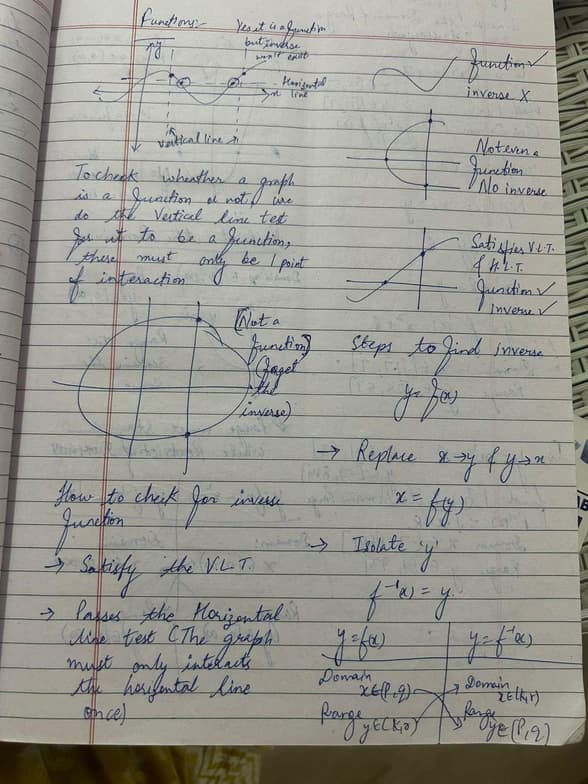 Functions:-
Yes it is a function
but inverse
won't exist
y
Horizontal
line
x
Vertical line
To check wheather a graph
is a function or not, we
do the Vertical line test
for it to be a function,
there must only be 1 point
of interaction
[Not a
function]
(forget
the
inverse)
How to check for inverse
function
→ Satisfy the V.L.T.
→ Passes the Horizontal
line test (The graph
must only interacts
the horizontal line
once)
function ✓
inverse X
Not even a
function
No inverse
Satisfies V.L.T.
& H.L.T.
function ✓
inverse ✓
Steps to find inverse
y = f(x)
→ Replace x → y & y → x
x = f(y)
→ Isolate 'y'
f⁻¹(x) = y
y = f(x)
Domain
x∈(P,q)
Range
y∈(k,r)
y = f⁻¹(x)
Domain
x∈(k,r)
Range
y∈(P,q)